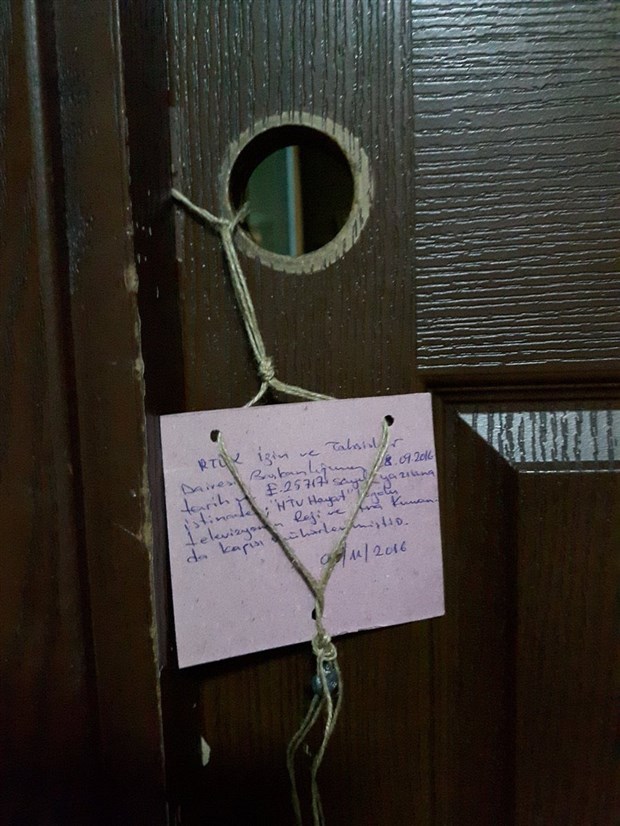 RTÜK İzin ve Tahsisler
Dairesi Başkanlığının 28.09.2016
tarih ve E.25717 sayılı yazısına
istinaden; "HTV Hayat" logolu
televizyonun Reji ve Kuman-
da kapısı mühürlenmiştir.
/11/2016